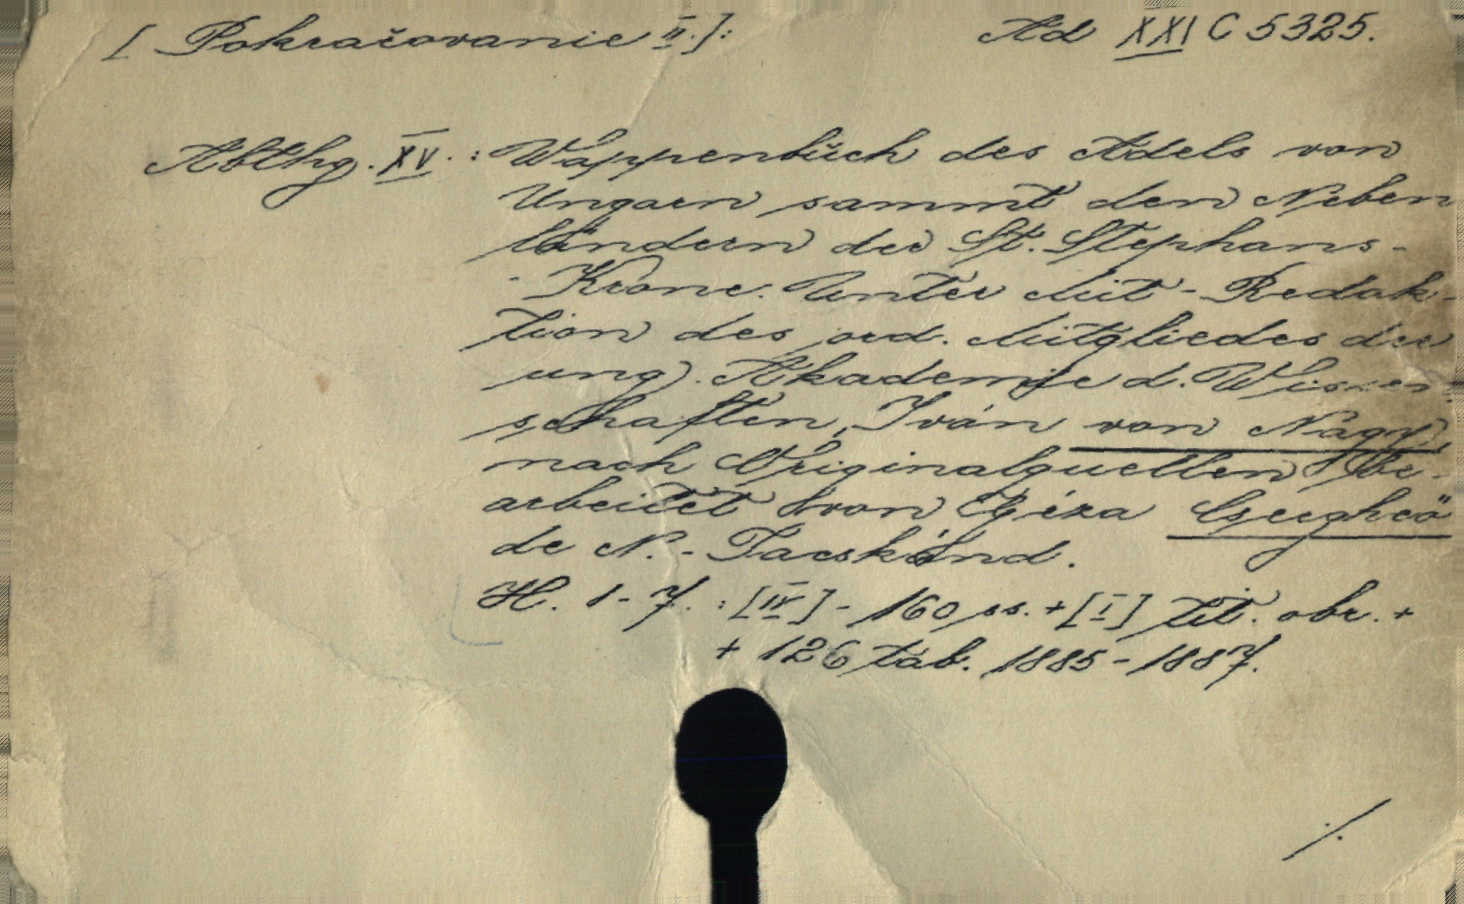 [ Pokračovanie II. ]: Ad XXI C 5325.
Abthg. XV. : Wappenbuch des Adels von
Ungarn sammt den Neben
ländern der St. Stephans-
-Krone. Unter Mit-Redak-
tion des ord. Mitgliedes der
ung. Akademie d. Wissen
schaften, Iván von Nagy,
nach Originalquellen be-
arbeitet von Géza Csergheö
de N.-Tacskánd.
H. 1-7. : [IV] - 160 ss. + [I] tit. obr. +
+ 126 tab. 1885-1887.
./.